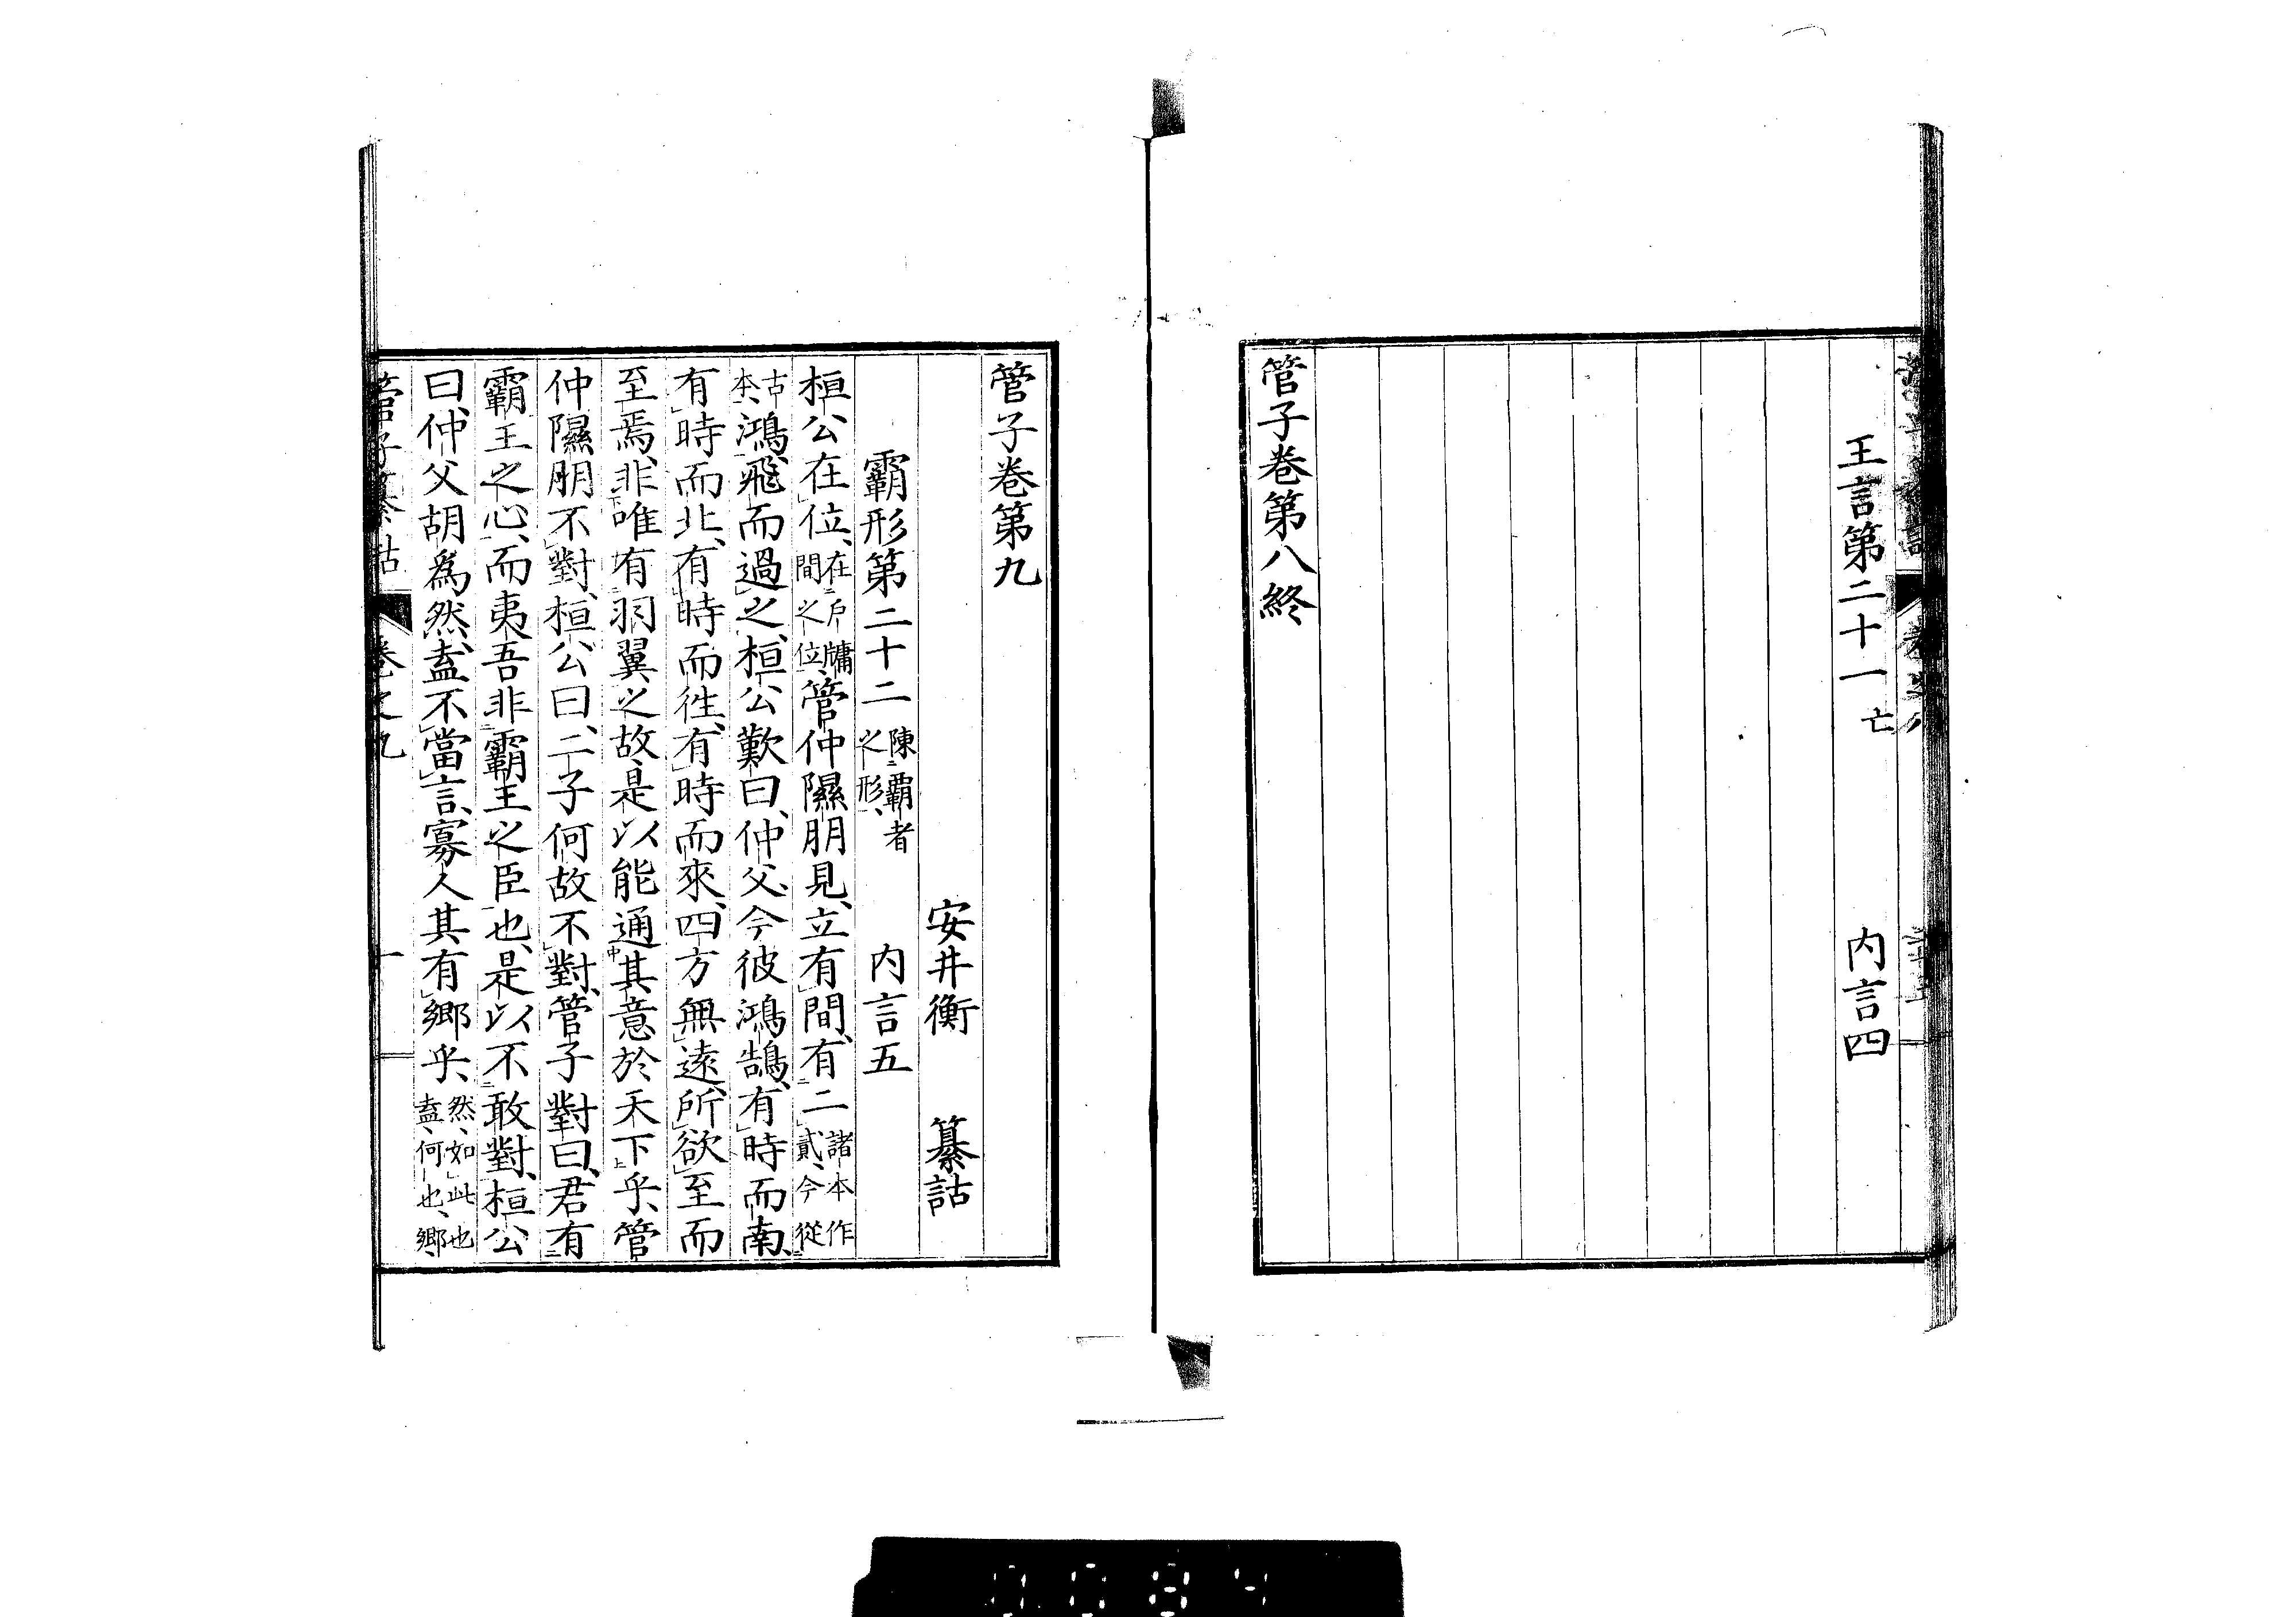 王言第二十一 亡 內言四
管子卷第八終
管子卷第九
安井衡 纂詁
霸形第二十二 陳霸者之形、 內言五
桓公在位、在戶牖間之位、管仲隰朋見、立有間、有二諸本作貳、今從
古本、鴻飛而過之、桓公歎曰、仲父、今彼鴻鵠、有時而南、
有時而北、有時而徃、有時而來、四方無遠、所欲至而
至焉、非唯有羽翼之故、是以能通其意於天下乎、管
仲隰朋不對、桓公曰、二子何故不對、管子對曰、君有
霸王之心、而夷吾非霸王之臣也、是以不敢對、桓公
曰、仲父胡爲然、盍不當言、寡人其有鄉乎、然、如此也、盍、何也、鄉、
管子纂詁 卷之九 一